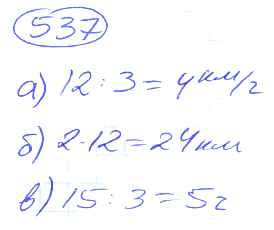 537
а) 12 : 3 = 4 км/г
б) 2 · 12 = 24 км
в) 15 : 3 = 5 г